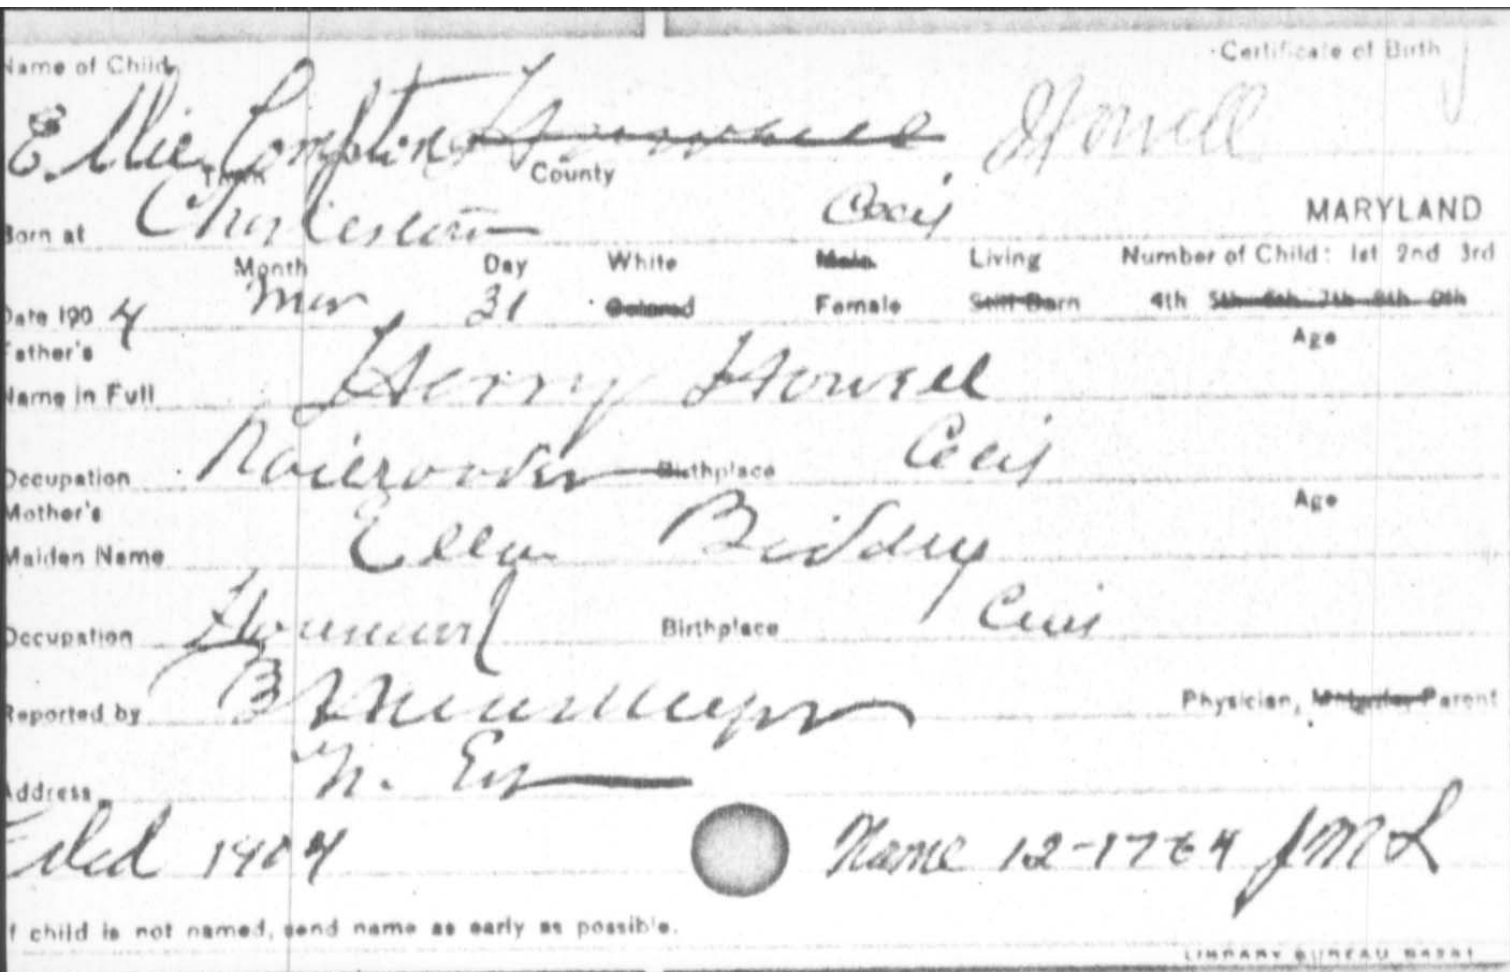 Name of Child Certificate of Birth
Ellie Compton Howell
Town County
Born at Charlestown Cecil MARYLAND
Month Day White Male Living Number of Child: 1st 2nd 3rd
Date 1904 Mar 31 Colored Female Still Born 4th 5th 6th 7th 8th 9th
Father's Age
Name in Full Harry Howell
Occupation Railroader Birthplace Cecil
Mother's Age
Maiden Name Ella
Occupation Birthplace Cecil
Reported by Physician, Midwife, Parent
Address N. E
Filed 1904 Name 12-17-64 JML
If child is not named, send name as early as possible.
LIBRARY BUREAU